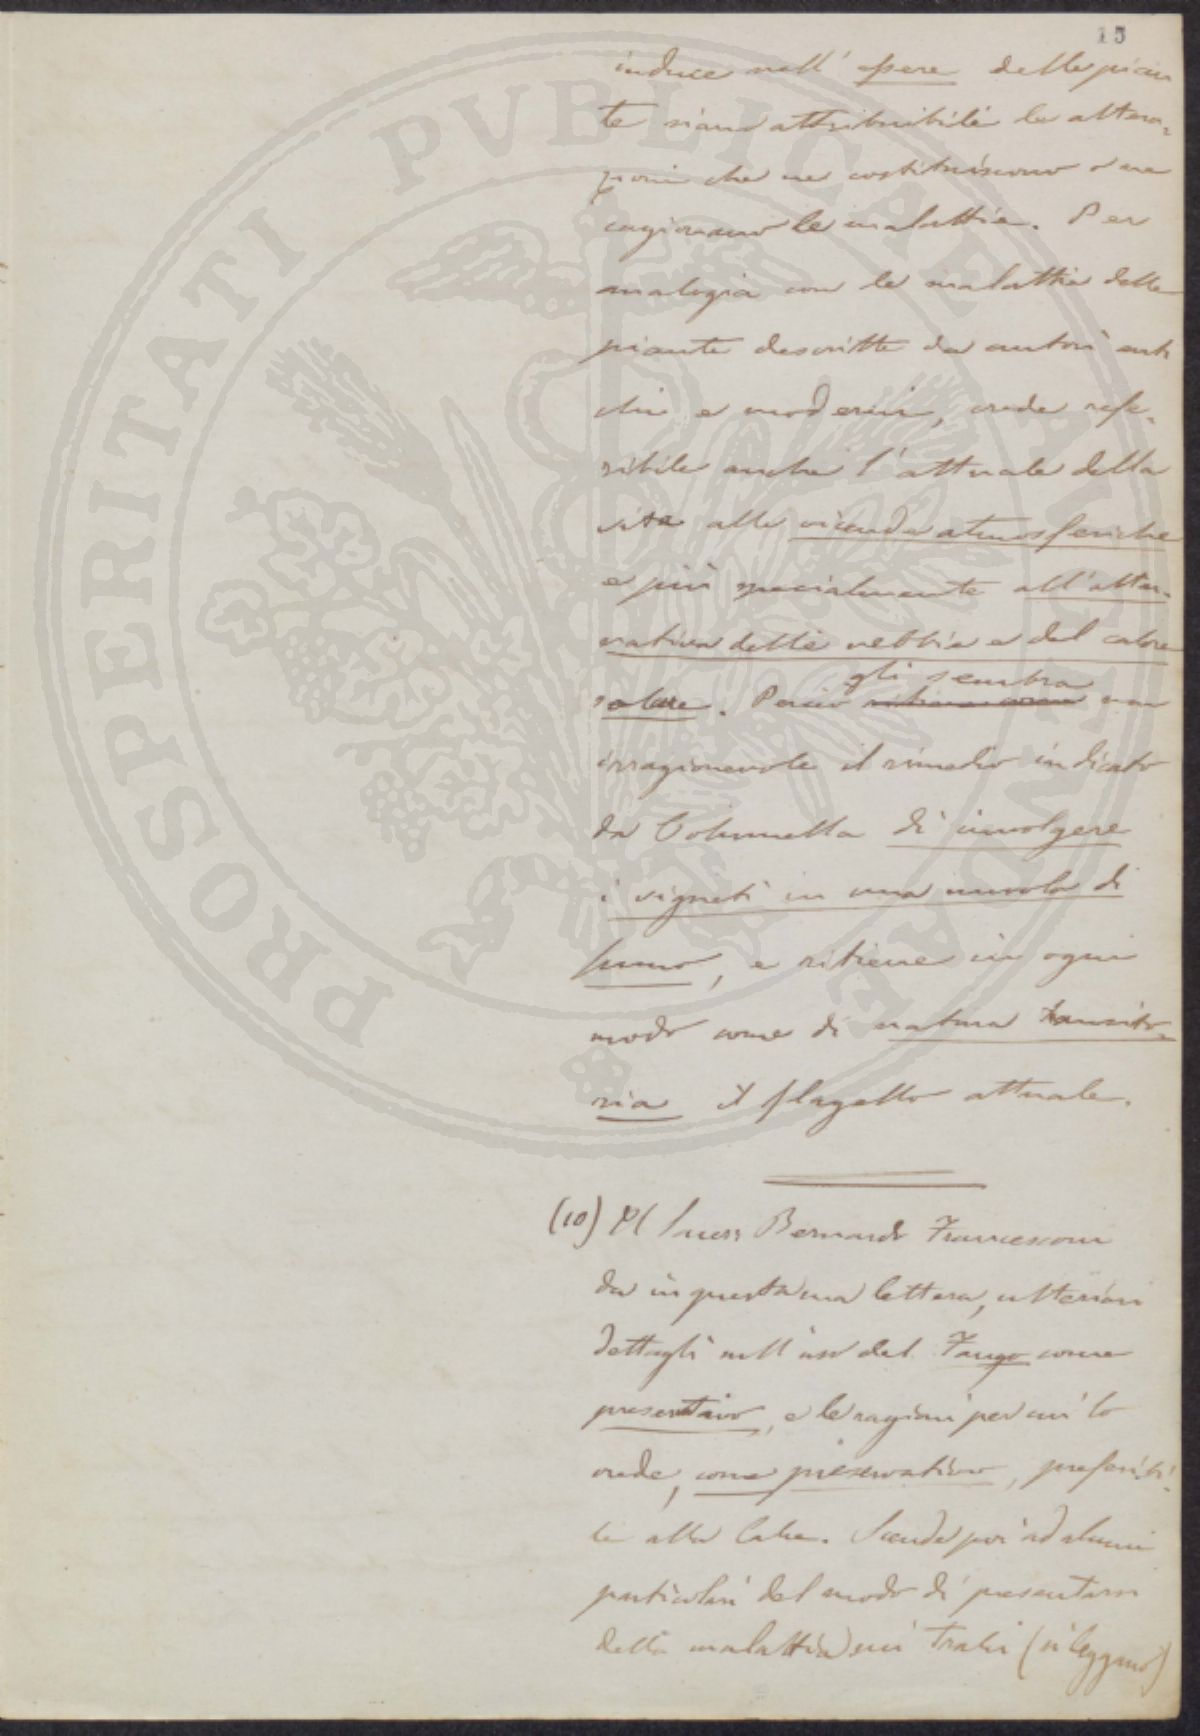 15
induce nell' essere delle pian
te siano attribuibili le altera-
zioni che ne costituiscono o ne
cagionano le malattie. Per
analogia con le malattie delle
piante descritte da autori anti
chi e moderni, crede refe-
ribile anche l'attuale della
vite alle vicende atmosferiche
e più specialmente all'alter-
nativa delle nebbie e del calore
gli sembra
solare. Perciò non
irragionevole il rimedio indicato
da Columella di involgere
i vigneti in una nuvola di
fumo, e ritiene in ogni
modo come di natura transito-
ria il flagello attuale.
(10) Il Bernardo Francesconi
da in questa sua lettera, ulteriori
dettagli sull'uso del Fango come
preservativo, e le ragioni per cui lo
crede, come preservativo, preferibi-
le alla Calce. Scende poi ad alcuni
particolari del modo di presentarsi
della malattia sui Tralci (si leggano)
PROSPERITATI PVBLICAE AVGENDAE